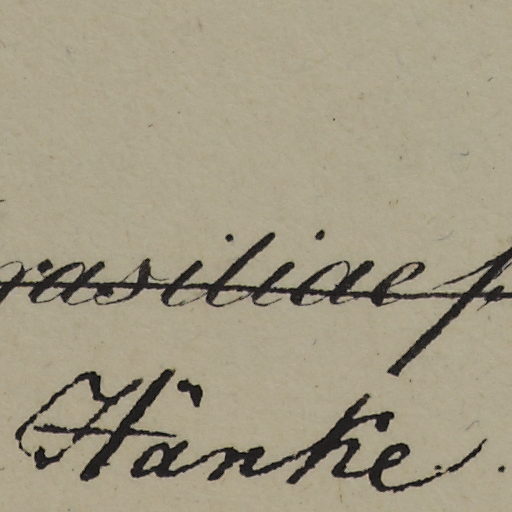 rasiliae p
Hänke.